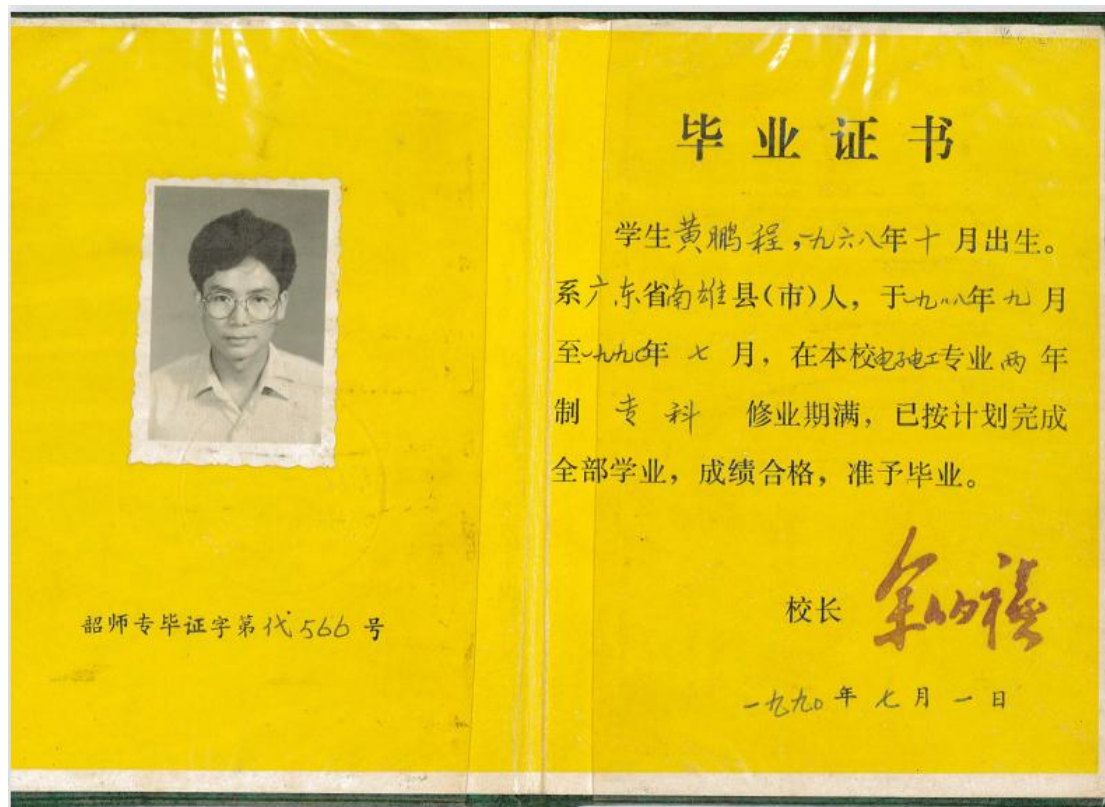 韶师专毕证字第代566号
毕业证书
学生黄鹏程,一九六八年十月出生。
系广东省南雄县(市)人，于一九八八年九月
至一九九〇年七月，在本校电子电工专业两年
制 专科 修业期满，已按计划完成
全部学业，成绩合格，准予毕业。
校长
一九九〇年七月一日